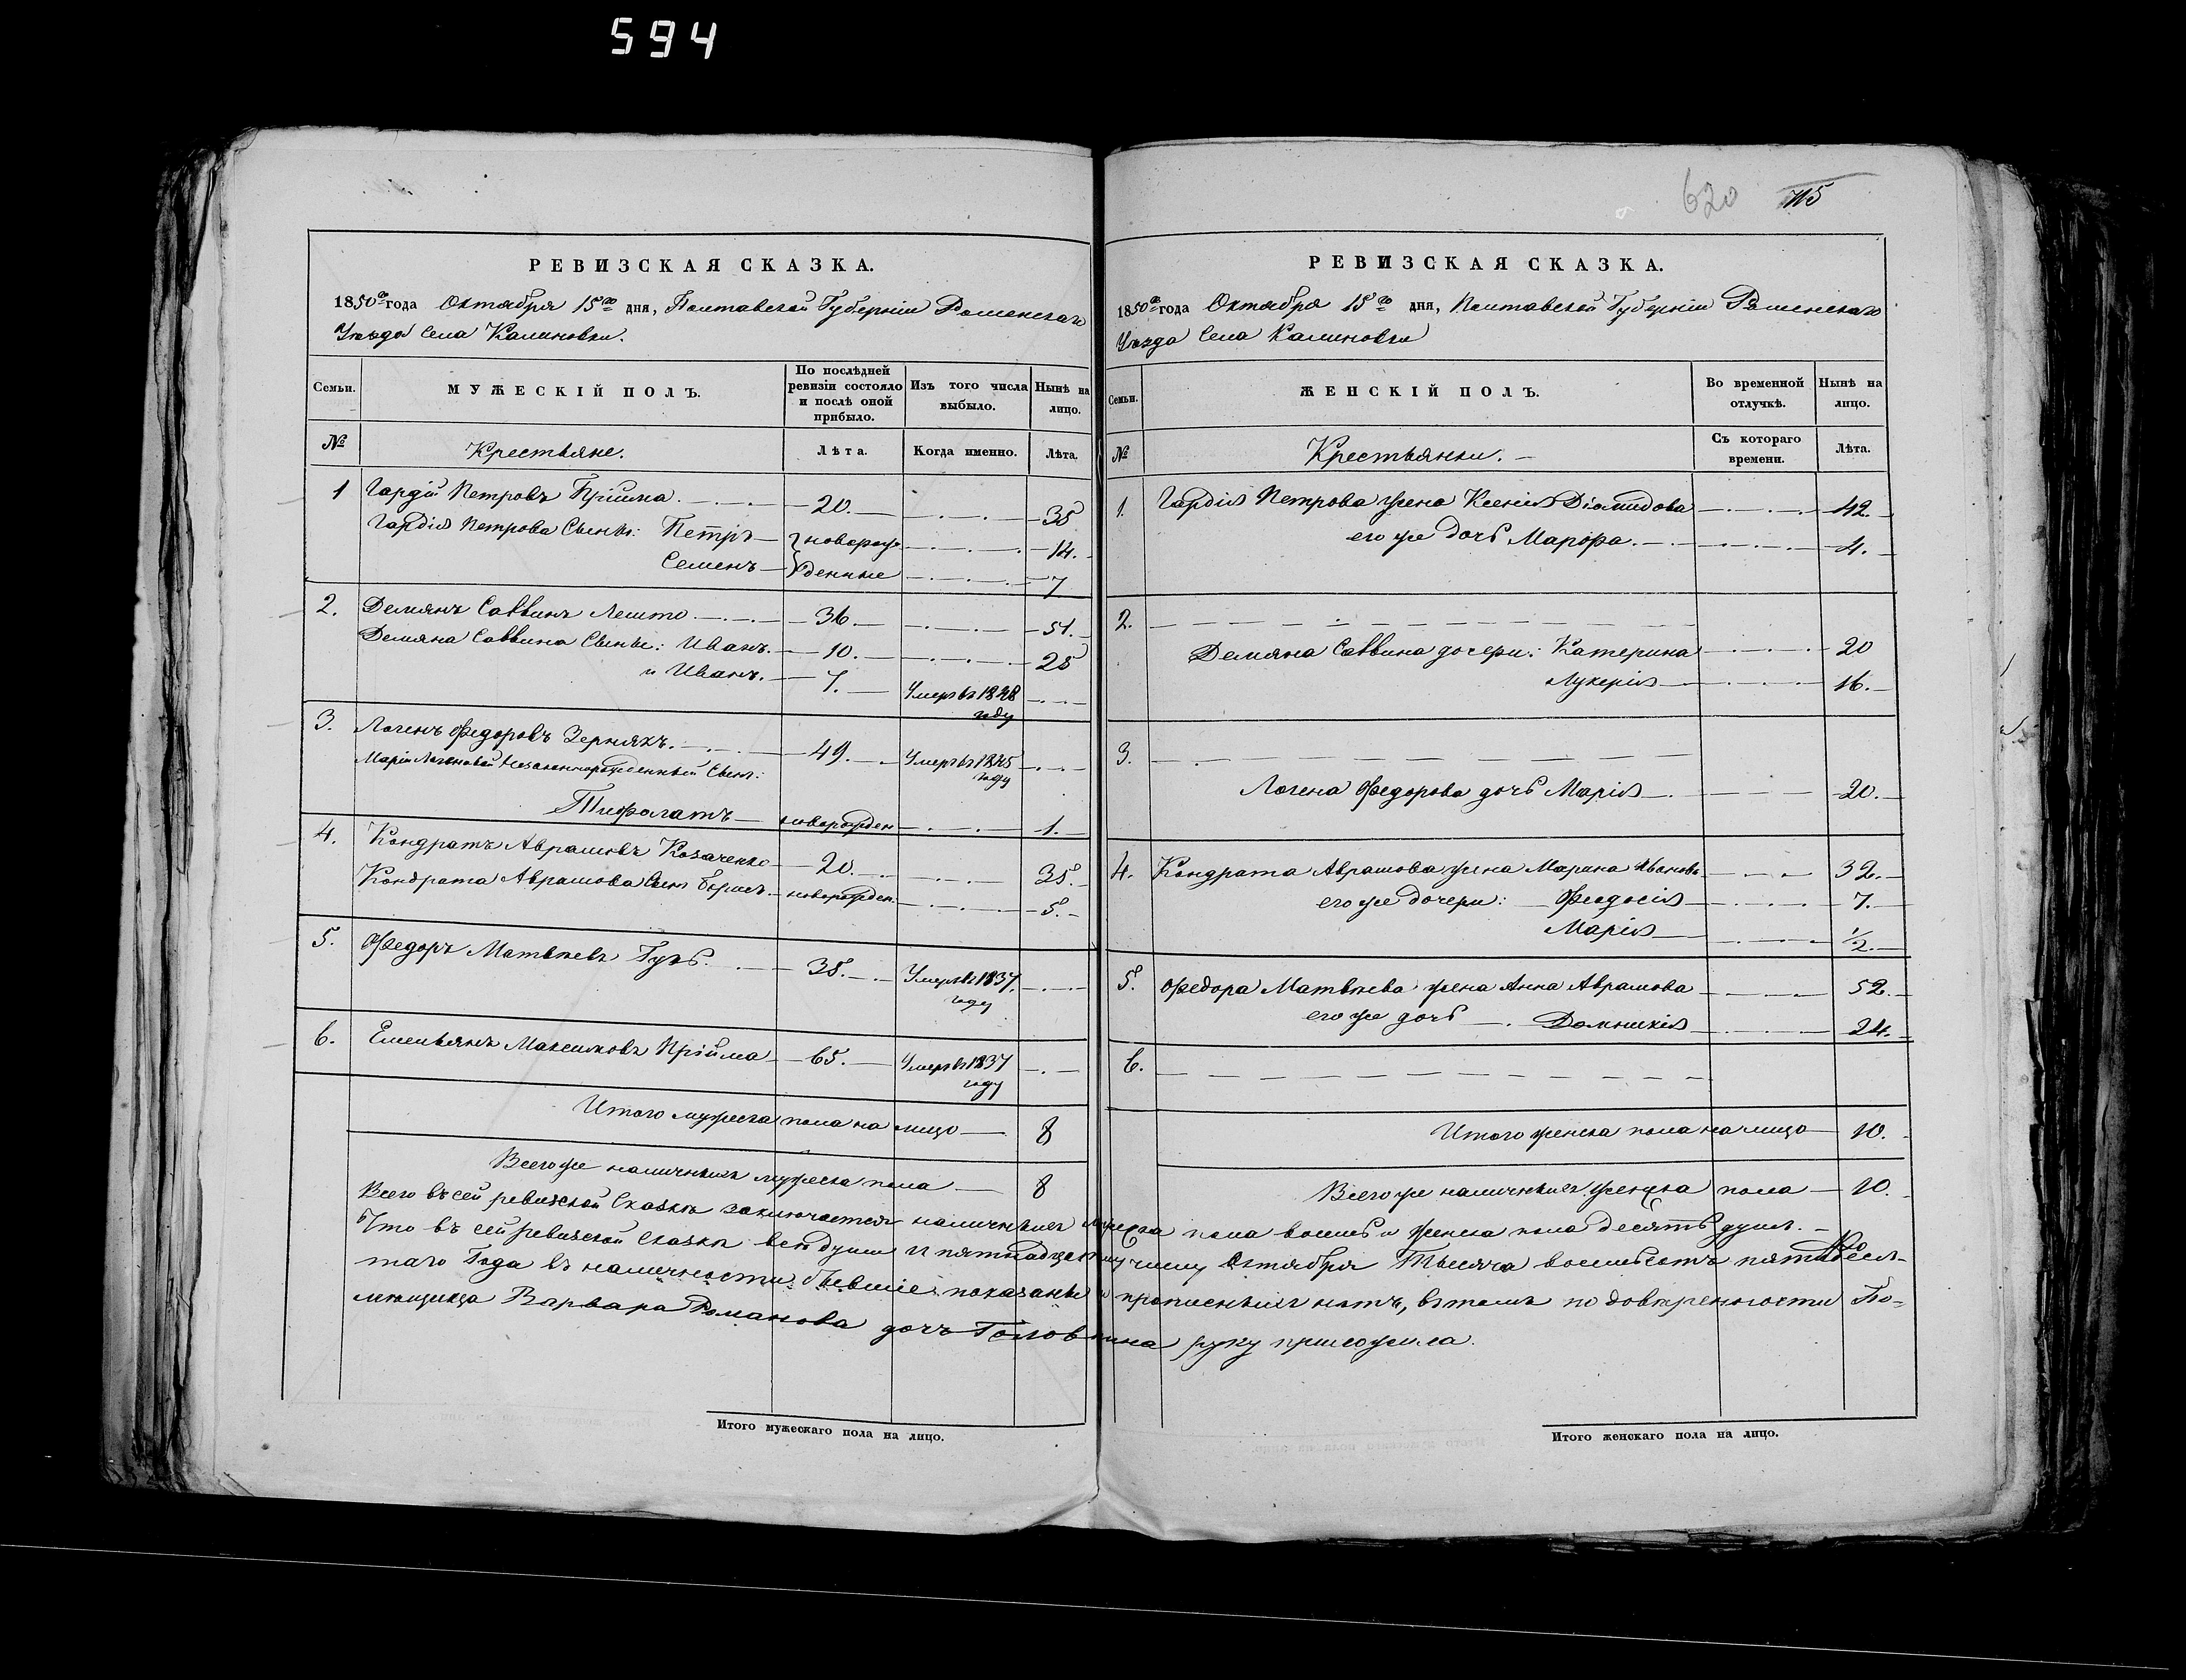 594
620 715
РЕВИЗСКАЯ СКАЗКА.
1850го года Октября 15го дня, Полтавской Губерніи Роменскаго
Уѣзда Села Калиновки.
Семьи.
МУЖЕСКІЙ ПОЛЪ.
По послѣдней
ревизіи состояло
и послѣ оной
прибыло.
Изъ того числа
выбыло.
Нынѣ на
лицо.
№
Крестьяне.
Лѣта.
Когда именно.
Лѣта.
1 Гардій Петровъ Прійма. 20. 35
Гардія Петрова Сыны: Петръ 14.
Семенъ 7
новорож
денные
2. Демянъ Саввинъ Лешто 36. 51.
Демяна Саввина Сыны: Иванъ. 10. 25
и Иванъ. 7. Умеръ въ 1848
году
3. Логенъ Федоровъ Зернякъ. 49. Умеръ въ 1845
году
Маріи Логеновой Незаконнорожденный Сынъ:
Тифолатъ новорожден 1.
4. Кондратъ Аврамовъ Козаченко 20. 35.
Кондрата Аврамова Сынъ Борисъ. новорожден. 5.
5. Федоръ Матвѣевъ Гузь. 38. Умеръ въ 1837.
году
6. Емельянъ Максимовъ Прійма 65. Умеръ въ 1837
году
Итого мужеска пола на лицо 8
Всего же наличныхъ мужеска пола 8
РЕВИЗСКАЯ СКАЗКА.
1850го года Октября 15го дня, Полтавской Губерніи Роменскаго
Уѣзда Села Калиновки
Семьи.
ЖЕНСКІЙ ПОЛЪ.
Во временной
отлучкѣ.
Нынѣ на
лицо.
№
Крестьянки.
Съ котораго
времени.
Лѣта.
1. Гардія Петрова жена Ксенія Діомидова 42.
его же дочь Марфа. 4.
2.
Демяна Саввина дочери: Катерина 20
Лукерія 16.
3.
Логена Федорова дочь Марія 20.
4. Кондрата Аврамова жена Марина Иванов. 32.
его же дочери: Феодосія 7.
Марія 1/2.
5. Федора Матвѣева жена Анна Аврамова 52.
его же дочь Домникія 24.
6.
Итого женска пола на лицо 10.
Всего же наличныхъ женска пола 10.
Всего въ сей ревизской Сказкѣ заключается наличныхъ мужеска пола восмь и женска пола десять душъ.
Что въ сей ревизской Сказкѣ всѣ души къ пятнадцатому числу Октября Тысяча восмьсотъ пятидеся-
таго Года въ наличности бывшіе показаны и прописныхъ нѣтъ, въ томъ по довѣренности По-
мѣщица Варвара Романова дочь Головкина руку приложила.
Итого мужескаго пола на лицо.
Итого женскаго пола на лицо.